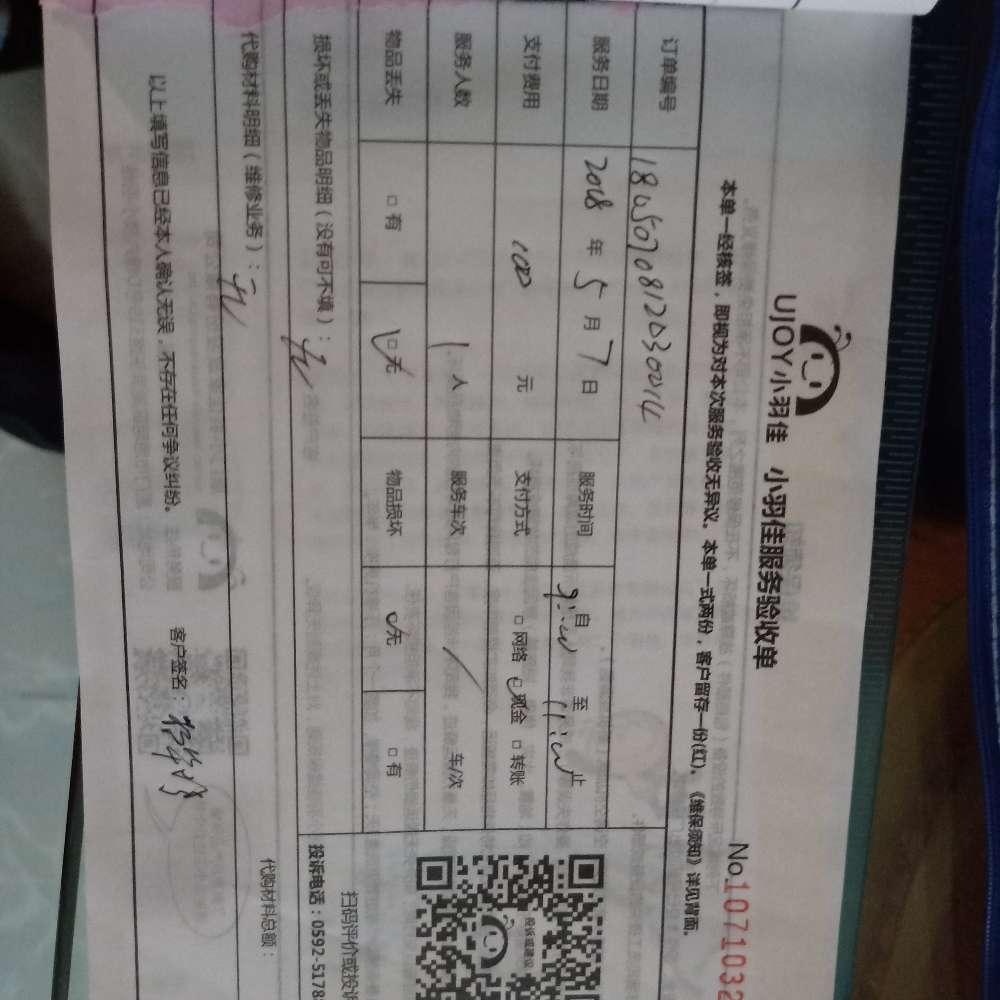 UJOY小羽佳 小羽佳服务验收单
No.1071032
本单一经核签，即视为对本次服务验收无异议。本单一式两份，客户留存一份(红)。《维保须知》详见背面。
订单编号 18050708120300214
服务日期 2018 年 5 月 7 日 服务时间 自 9:00 至 11:00 止
支付费用 100 元 支付方式 □ 网络 □ 现金 □ 转账
服务人数 1 人 服务车次 / 车/次
物品丢失 □ 有 □ 无 物品损坏 □ 无 □ 有
损坏或丢失物品明细（没有可不填）：无
代购材料明细（维修业务）：无
代购材料总额：
以上填写信息已经本人确认无误，不存在任何争议纠纷。 客户签名：
投诉或建议
扫码评价或投诉
投诉电话：0592-5178